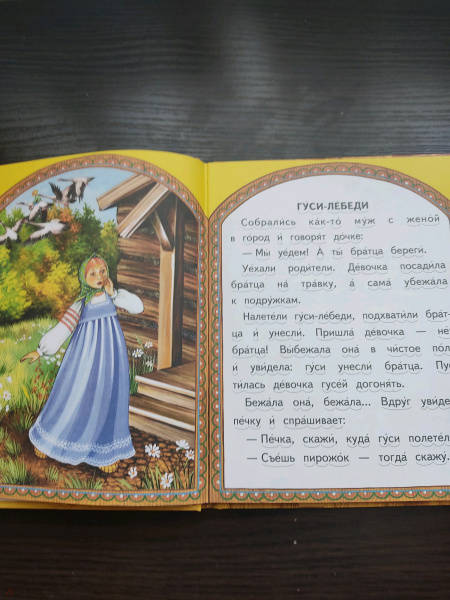 ГУСИ-ЛЕ́БЕДИ
Собрали́сь ка́к-то му́ж с жено́й
в го́род и́ говоря́т до́чке:
— Мы уе́дем! А ты бра́тца береги́.
Уе́хали роди́тели. Де́вочка посади́ла
бра́тца на́ тра́вку, а́ сама́ убежа́ла
к подру́жкам.
Налете́ли гу́си-ле́беди, подхвати́ли бра́т-
ца и́ унесли́. Пришла́ де́вочка — не́
бра́тца! Вы́бежала она́ в чи́стое по́л
и́ уви́дела: гу́си унесли́ бра́тца. Пус
ти́лась де́вочка гусе́й догоня́ть.
Бежа́ла она́, бежа́ла... Вдру́г уви́де
пе́чку и́ спра́шивает:
— Пе́чка, скажи́, куда́ гу́си полете́л
— Съе́шь пирожо́к — тогда́ скажу́.